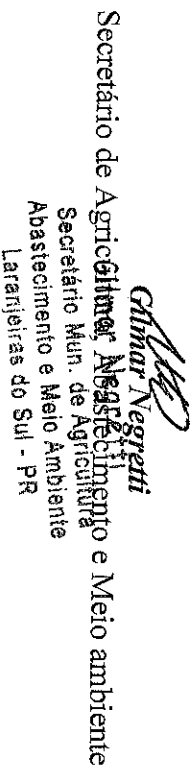 Gilmar Negretti
Secretário de Agricultura, Abastecimento e Meio ambiente
Gilmar Negretti
Secretário Mun. de Agricultura
Abastecimento e Meio Ambiente
Laranjeiras do Sul - PR